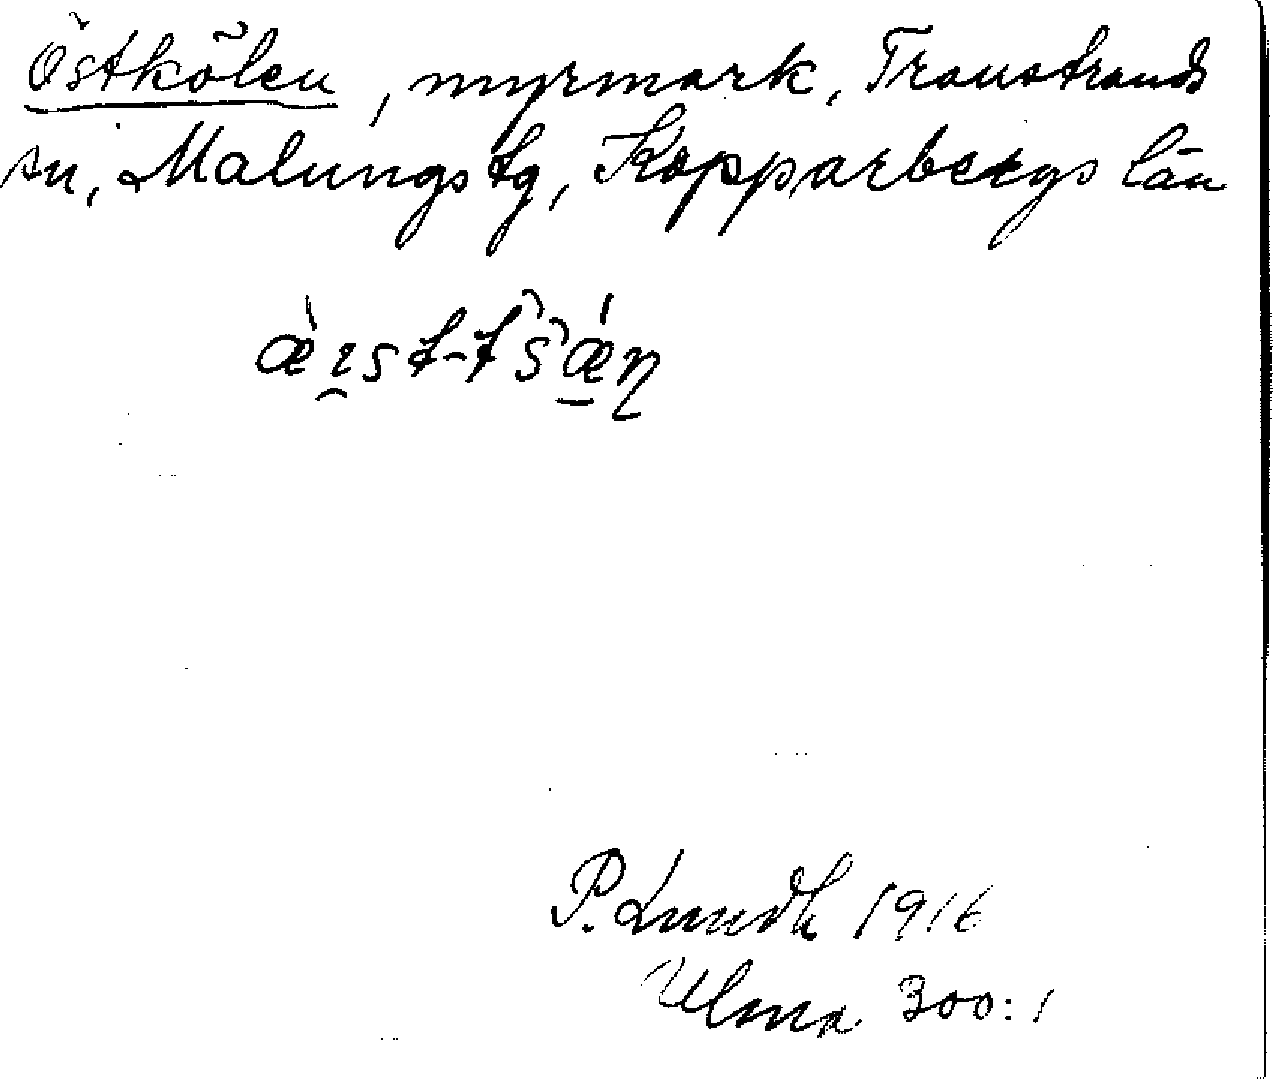 Östkölen, myrmark, Transtrands
sn, Malungs tg, Kopparbergs län
æ̀ɪ̯st-tŝǽ̱ŋ
P. Lundh 1916
Ulma 300:1